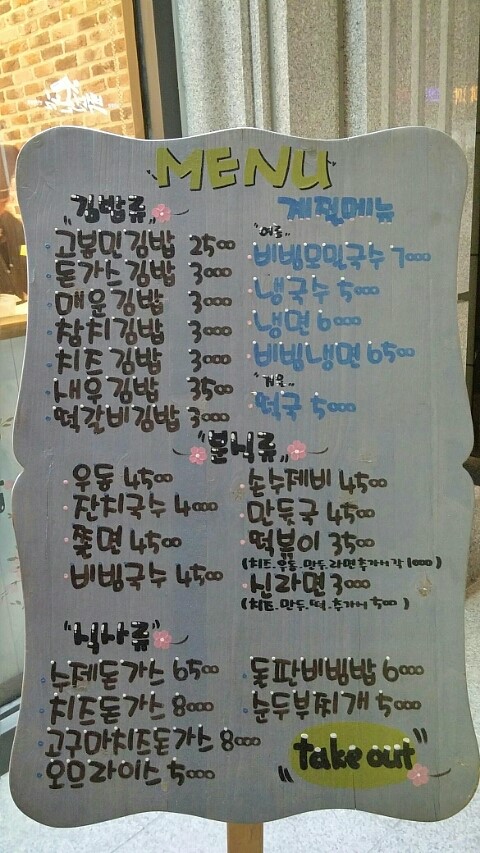 MENU
"김밥류"
고봉민김밥 2500
돈가스김밥 3000
매운김밥 3000
참치김밥 3000
치즈김밥 3000
새우김밥 3500
떡갈비김밥 3000
계절메뉴
"여름"
비빔모밀국수 7000
냉국수 5000
냉면 6000
비빔냉면 6500
"겨울"
떡국 5000
"분식류"
우동 4500
잔치국수 4000
쫄면 4500
비빔국수 4500
손수제비 4500
만둣국 4500
떡볶이 3500
(치즈.우동.만두.라면추가시 각 1000)
신라면 3000
(치즈.만두.떡.추가시 500)
"식사류"
수제돈가스 6500
치즈돈가스 8000
고구마치즈돈가스 8000
오므라이스 5000
돌판비빔밥 6000
순두부찌개 5000
"take out"